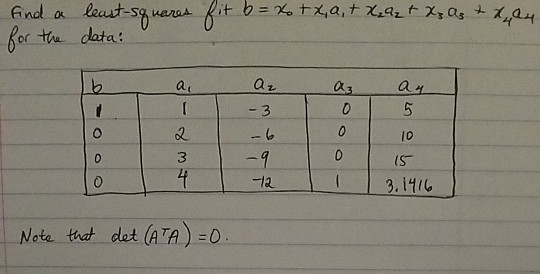 Find a least-squares fit b = x₀ + x₁a₁ + x₂a₂ + x₃a₃ + x₄a₄
for the data:
b a₁ a₂ a₃ a₄
1 1 -3 0 5
0 2 -6 0 10
0 3 -9 0 15
0 4 -12 1 3.1416
Note that det (AᵀA) = 0.